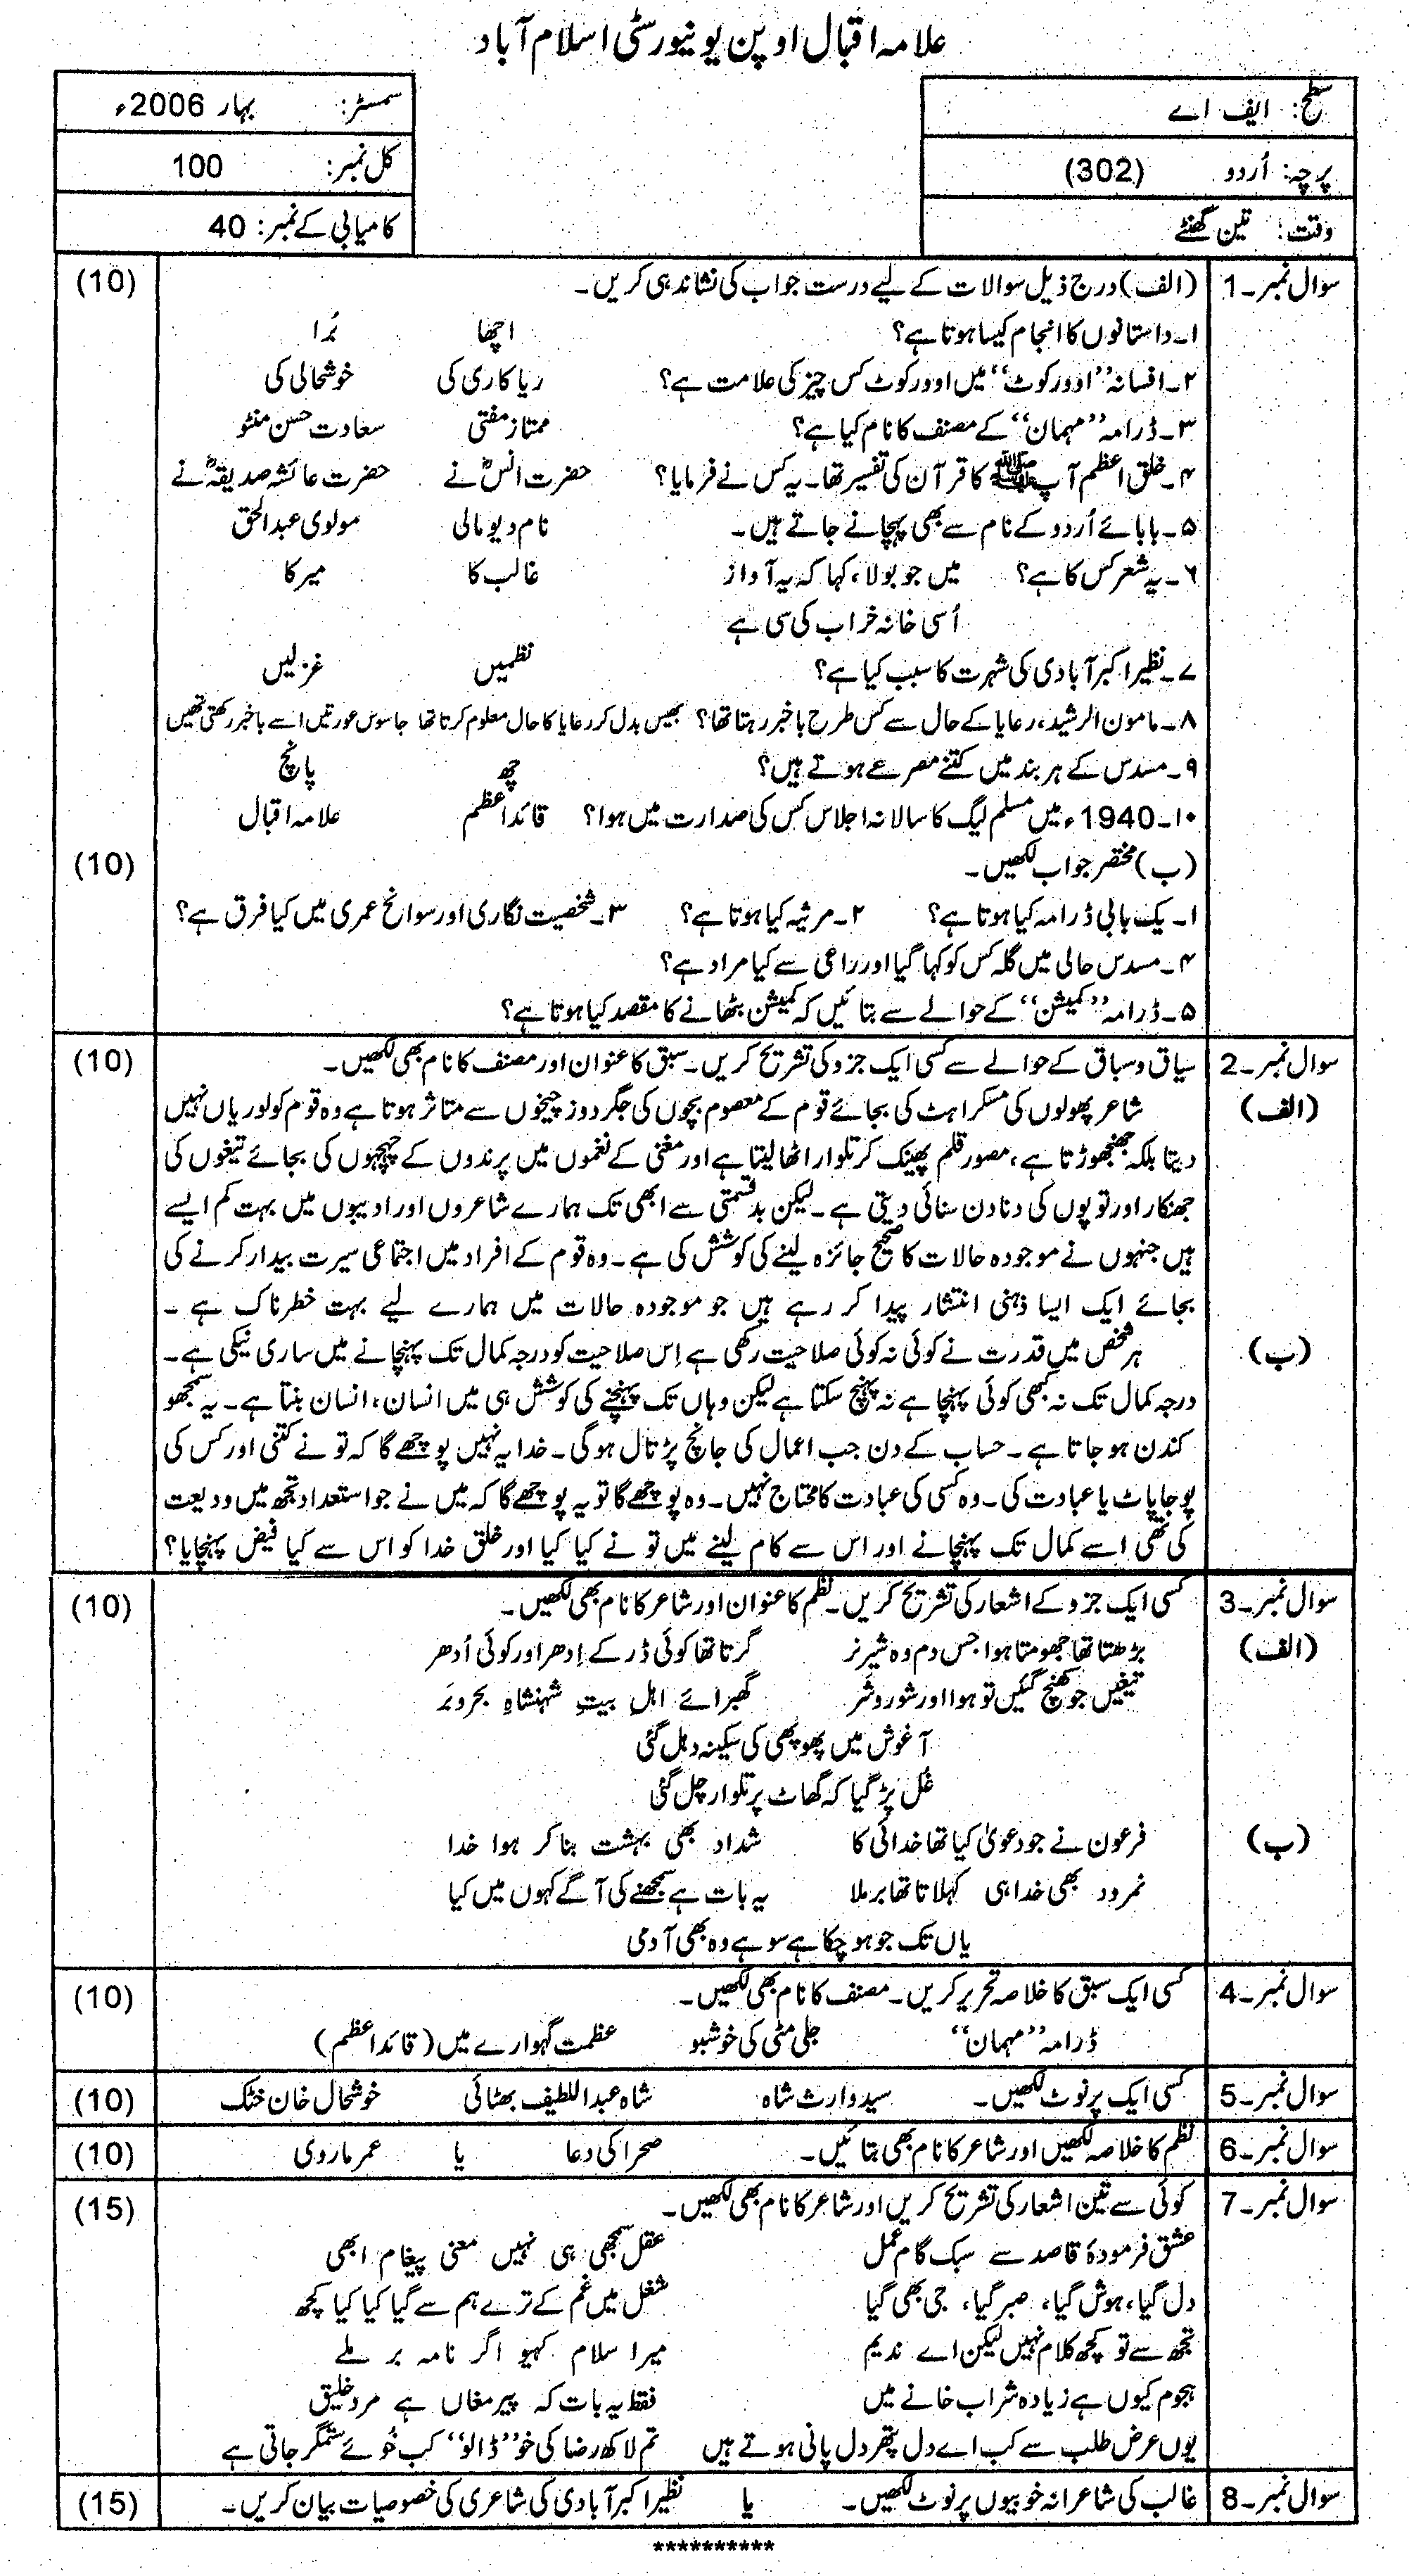 علامہ اقبال اوپن یونیورسٹی اسلام آباد
سطح: ایف اے
سمسٹر: بہار 2006ء
پرچہ: اُردو (302)
کل نمبر: 100
وقت: تین گھنٹے
کامیابی کے نمبر: 40
سوال نمبر۔1 (الف) درج ذیل سوالات کے لیے درست جواب کی نشاندہی کریں۔ (10)
۱۔ داستانوں کا انجام کیسا ہوتا ہے؟ اچھا بُرا
۲۔ افسانہ ’’اوورکوٹ‘‘ میں اوورکوٹ کس چیز کی علامت ہے؟ ریاکاری کی خوشحالی کی
۳۔ ڈرامہ ’’مہمان‘‘ کے مصنف کا نام کیا ہے؟ ممتاز مفتی سعادت حسن منٹو
۴۔ خلق اعظم آپ ﷺ کا قرآن کی تفسیر تھا۔ یہ کس نے فرمایا؟ حضرت انسؓ نے حضرت عائشہ صدیقہؓ نے
۵۔ بابائے اُردو کے نام سے بھی پہچانے جاتے ہیں۔ نام دیومالی مولوی عبدالحق
۶۔ یہ شعر کس کا ہے؟ میں جو بولا، کہا کہ یہ آواز غالب کا میر کا
اُسی خانہ خراب کی سی ہے
۷۔ نظیر اکبر آبادی کی شہرت کا سبب کیا ہے؟ نظمیں غزلیں
۸۔ مامون الرشید، رعایا کے حال سے کس طرح باخبر رہتا تھا؟ بھیس بدل کر رعایا کا حال معلوم کرتا تھا جاسوس عورتیں اسے باخبر رکھتی تھیں
۹۔ مسدس کے ہر بند میں کتنے مصرعے ہوتے ہیں؟ چھ پانچ
۱۰۔ 1940ء میں مسلم لیگ کا سالانہ اجلاس کس کی صدارت میں ہوا؟ قائداعظم علامہ اقبال
(ب) مختصر جواب لکھیں۔ (10)
۱۔ یک بابی ڈرامہ کیا ہوتا ہے؟ ۲۔ مرثیہ کیا ہوتا ہے؟ ۳۔ شخصیت نگاری اور سوانح عمری میں کیا فرق ہے؟
۴۔ مسدس حالی میں گلہ کس کو کہا گیا اور راعی سے کیا مراد ہے؟
۵۔ ڈرامہ ’’کمیشن‘‘ کے حوالے سے بتائیں کہ کمیشن بٹھانے کا مقصد کیا ہوتا ہے؟
سوال نمبر۔2 سیاق و سباق کے حوالے سے کسی ایک جزو کی تشریح کریں۔ سبق کا عنوان اور مصنف کا نام بھی لکھیں۔ (10)
(الف) شاعر پھولوں کی مسکراہٹ کی بجائے قوم کے معصوم بچوں کی جگر دوز چیخوں سے متاثر ہوتا ہے وہ قوم کو لوریاں نہیں
دیتا بلکہ جھنجھوڑتا ہے، مصور قلم پھینک کر تلوار اٹھا لیتا ہے اور مغنی کے نغموں میں پرندوں کے چہچہوں کی بجائے تیغوں کی
جھنکار اور توپوں کی دنادن سنائی دیتی ہے۔ لیکن بدقسمتی سے ابھی تک ہمارے شاعروں اور ادیبوں میں بہت کم ایسے
ہیں جنہوں نے موجودہ حالات کا صحیح جائزہ لینے کی کوشش کی ہے۔ وہ قوم کے افراد میں اجتماعی سیرت بیدار کرنے کی
بجائے ایک ایسا ذہنی انتشار پیدا کر رہے ہیں جو موجودہ حالات میں ہمارے لیے بہت خطرناک ہے۔
(ب) ہر شخص میں قدرت نے کوئی نہ کوئی صلاحیت رکھی ہے اِس صلاحیت کو درجہ کمال تک پہنچانے میں ساری نیکی ہے۔
درجہ کمال تک نہ کبھی کوئی پہنچا ہے نہ پہنچ سکتا ہے لیکن وہاں تک پہنچنے کی کوشش ہی میں انسان، انسان بنتا ہے۔ یہ سمجھو
کندن ہو جاتا ہے۔ حساب کے دن جب اعمال کی جانچ پڑتال ہوگی۔ خدا یہ نہیں پوچھے گا کہ تو نے کتنی اور کس کی
پوجا پاٹ یا عبادت کی۔ وہ کسی کی عبادت کا محتاج نہیں۔ وہ پوچھے گا تو یہ پوچھے گا کہ میں نے جو استعداد تجھ میں ودیعت
کی تھی اسے کمال تک پہنچانے اور اس سے کام لینے میں تو نے کیا کیا اور خلق خدا کو اس سے کیا فیض پہنچایا؟
سوال نمبر۔3 کسی ایک جزو کے اشعار کی تشریح کریں۔ نظم کا عنوان اور شاعر کا نام بھی لکھیں۔ (10)
(الف) بڑھتا تھا جھومتا ہوا جس دم وہ شیر نر گرتا تھا کوئی ڈر کے اِدھر اور کوئی اُدھر
تیغیں جو کھنچ گئیں تو ہوا اور شور و شر گھبرائے اہلِ بیتِ شہنشاہِ بحر و بَر
آغوش میں پھوپھی کی سکینہ دہل گئی
غُل پڑ گیا کہ گھاٹ پر تلوار چل گئی
(ب) فرعون نے جو دعویٰ کیا تھا خدائی کا شداد بھی بہشت بنا کر ہوا خدا
نمرود بھی خدا ہی کہلاتا تھا برملا یہ بات ہے سمجھنے کی آگے کہوں میں کیا
یاں تک جو ہو چکا ہے سو ہے وہ بھی آدمی
سوال نمبر۔4 کسی ایک سبق کا خلاصہ تحریر کریں۔ مصنف کا نام بھی لکھیں۔ (10)
ڈرامہ ’’مہمان‘‘ جلی مٹی کی خوشبو عظمت گہوارے میں (قائداعظم)
سوال نمبر۔5 کسی ایک پر نوٹ لکھیں۔ سید وارث شاہ شاہ عبداللطیف بھٹائی خوشحال خان خٹک (10)
سوال نمبر۔6 نظم کا خلاصہ لکھیں اور شاعر کا نام بھی بتائیں۔ صحرا کی دعا یا عمر ماروی (10)
سوال نمبر۔7 کوئی سے تین اشعار کی تشریح کریں اور شاعر کا نام بھی لکھیں۔ (15)
عشق فرمودۂ قاصد سے سبک گام عمل عقل سمجھی ہی نہیں معنی پیغام ابھی
دل گیا، ہوش گیا، صبر گیا، جی بھی گیا شغل میں غم کے ترے ہم سے گیا کیا کیا کچھ
تجھ سے تو کچھ کلام نہیں لیکن اے ندیم میرا سلام کہیو اگر نامہ بر ملے
ہجوم کیوں ہے زیادہ شراب خانے میں فقط یہ بات کہ پیر مغاں ہے مرد خلیق
یوں عرض طلب سے کب اے دل پتھر دل پانی ہوتے ہیں تم لاکھ رضا کی خو ’’ڈالو‘‘ کب خُوئے ستمگر جاتی ہے
سوال نمبر۔8 غالب کی شاعرانہ خوبیوں پر نوٹ لکھیں۔ یا نظیر اکبر آبادی کی شاعری کی خصوصیات بیان کریں۔ (15)
**********